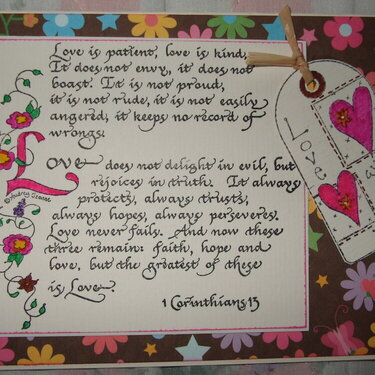 Love is patient, love is kind,
It does not envy, it does not
boast. It is not proud,
it is not rude, it is not easily
angered, it keeps no record of
wrongs.
Love does not delight in evil, but
rejoices in truth. It always
protects, always trusts,
always hopes, always perseveres.
Love never fails. And now these
three remain: faith, hope and
love, but the greatest of these
is Love.
1 Corinthians 13
Love
a